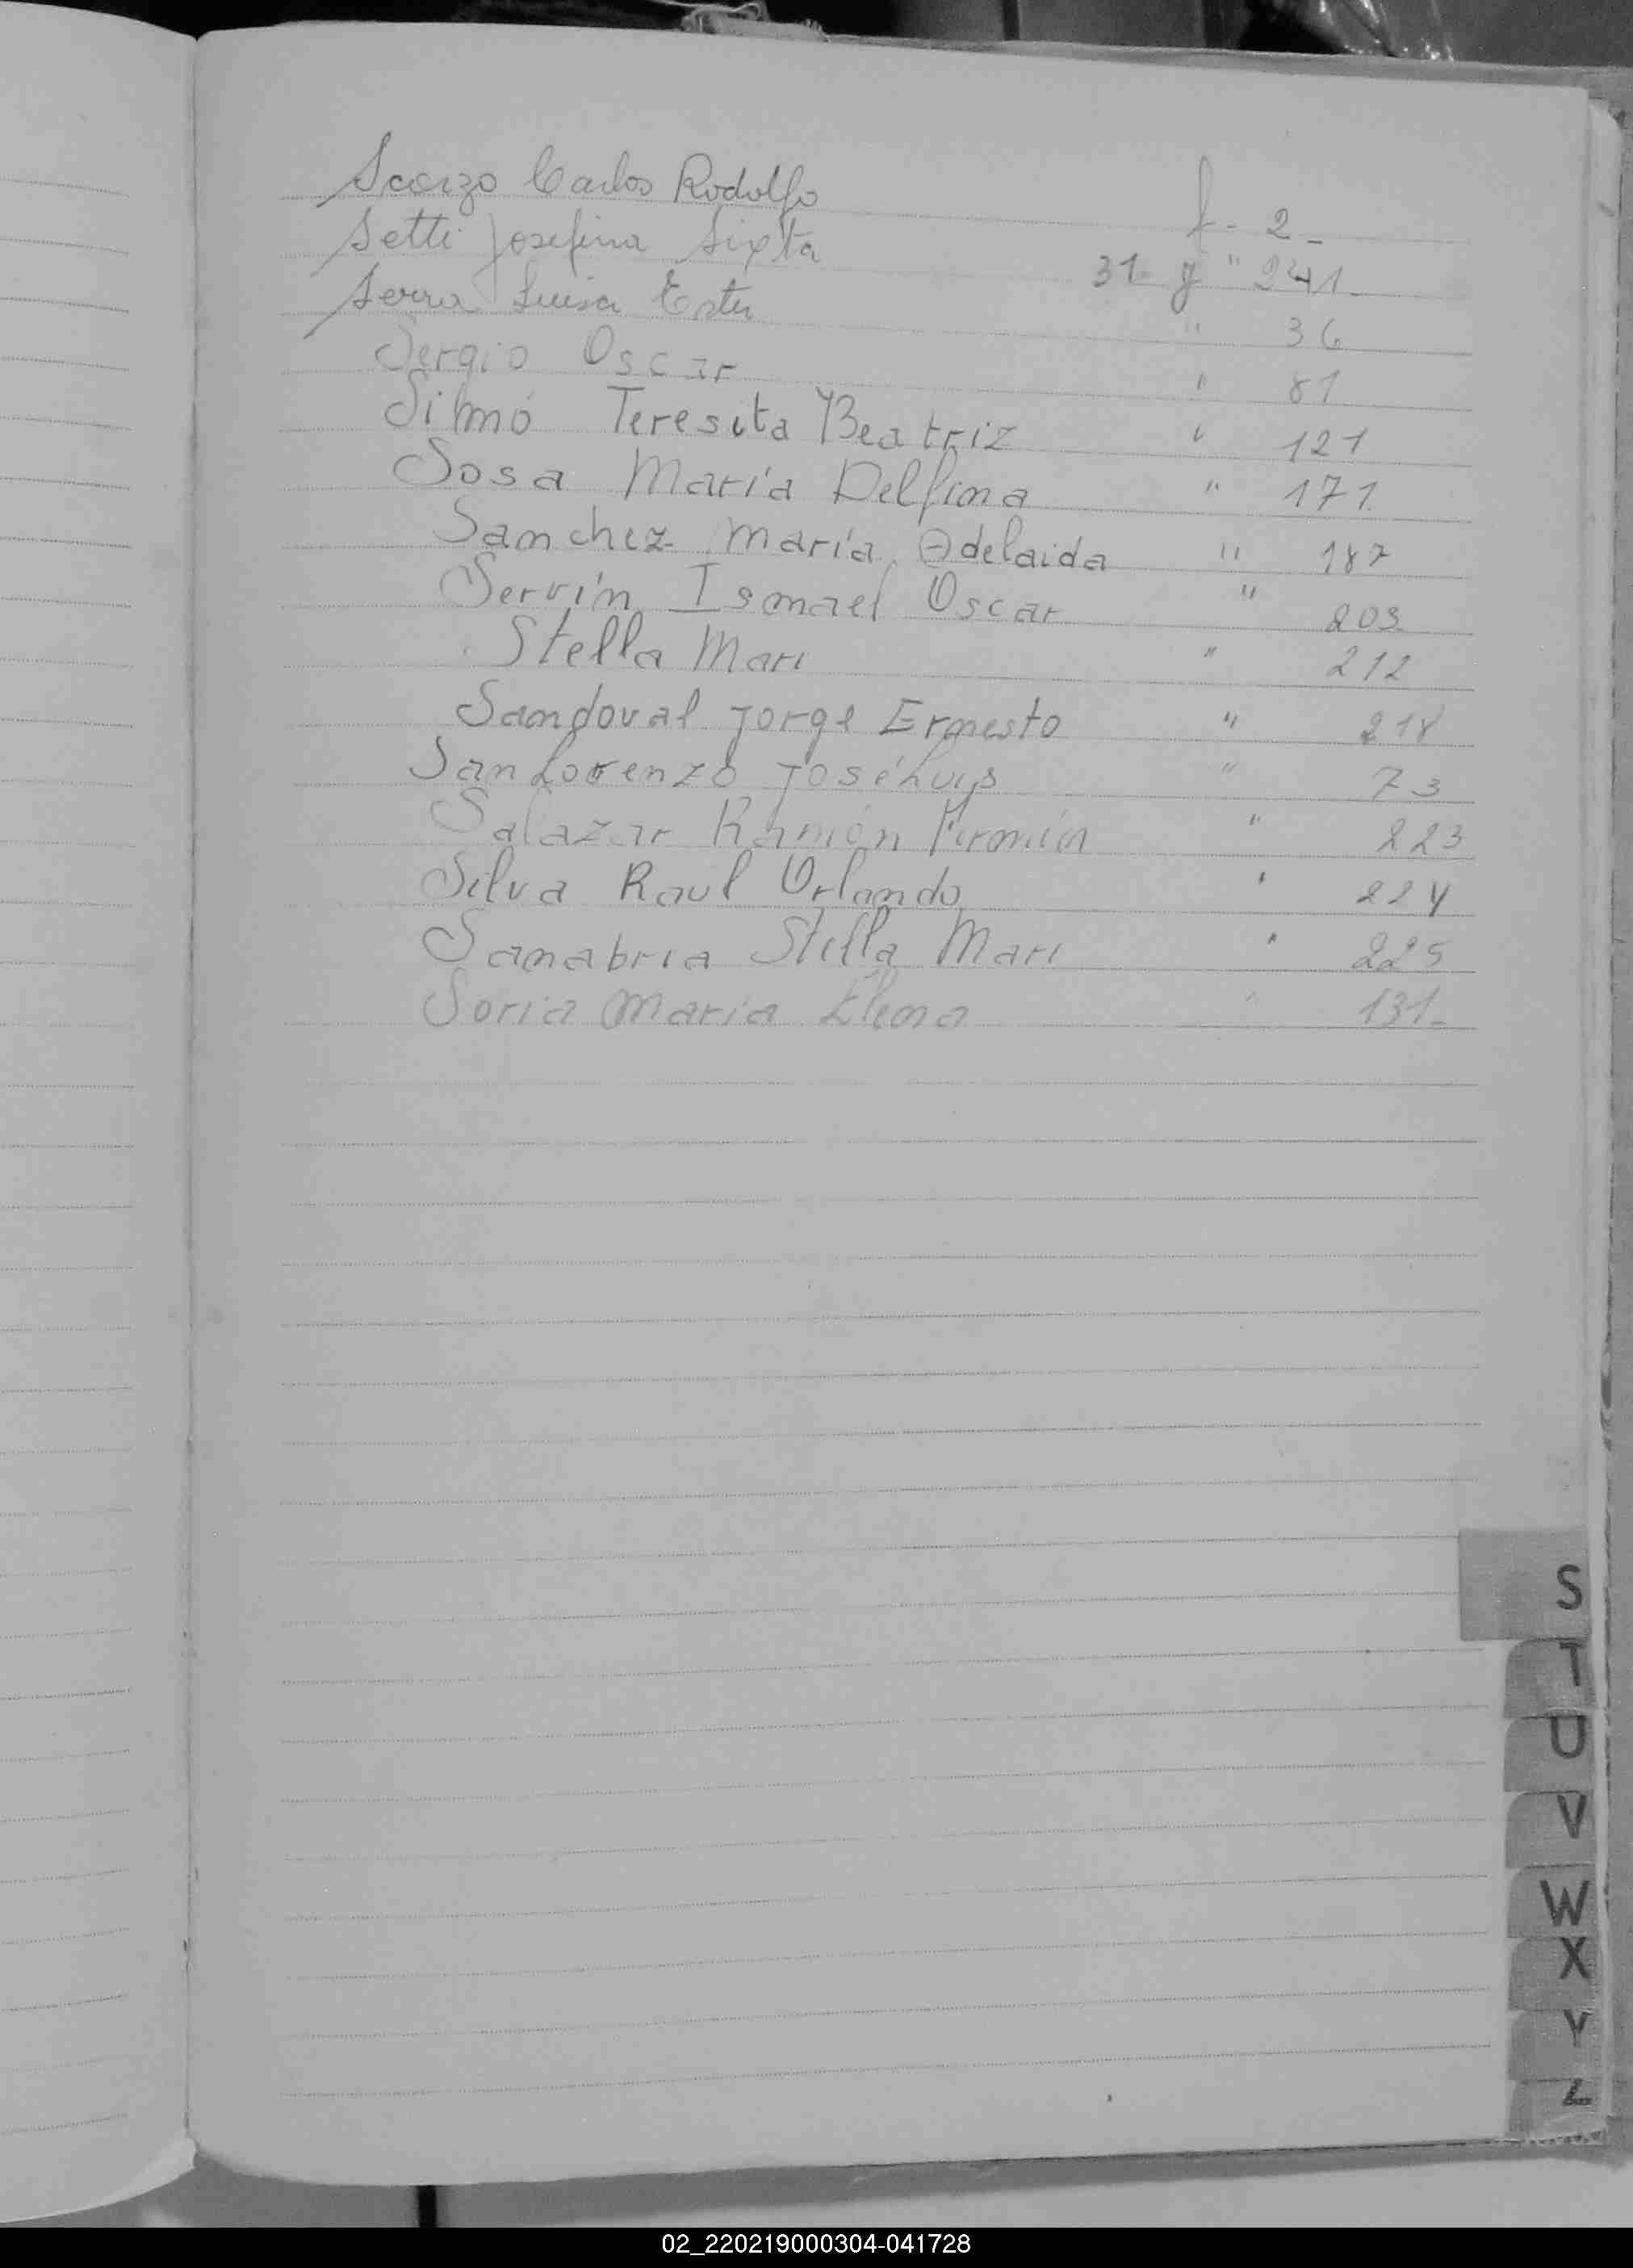 Scorzo Carlos Rodolfo f - 2 -
Setti Josefina Sixta 31- y " 241-
Serra Luisa Ester " 36
Sergio Oscar " 81
Silmó Teresita Beatriz " 121
Sosa María Delfina " 171.
Sanchez María Adelaida " 187
Servín Ismael Oscar " 203
Stella Mari " 212
Sandoval Jorge Ernesto " 218
San Lorenzo José Luis " 73
Salazar Ramón Firmín " 223
Silva Raul Orlando " 224
Sanabria Stella Mari " 225
Soria Maria Elena " 131-
S
T
U
V
W
X
Y
Z
02_220219000304-041728